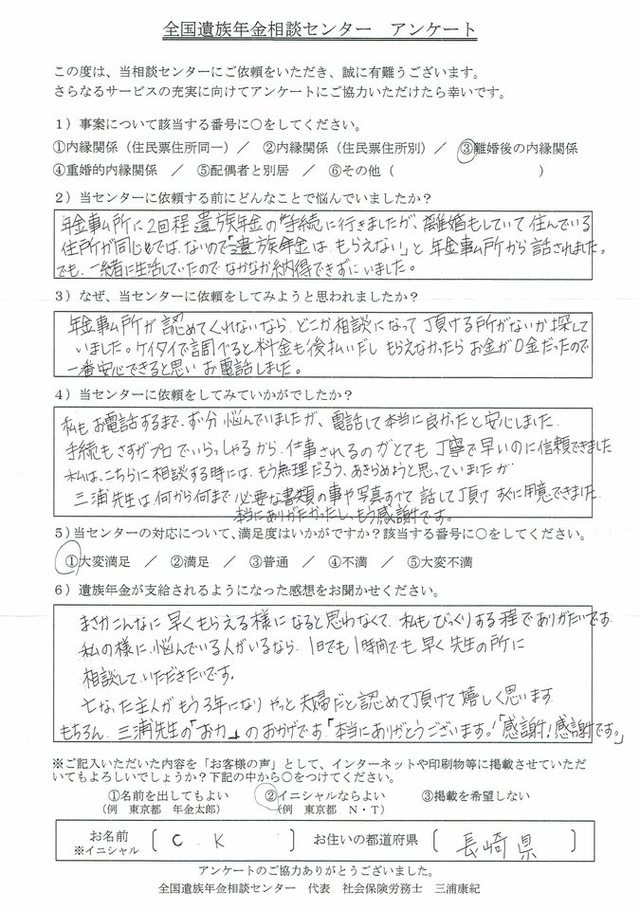 全国遺族年金相談センター　アンケート
この度は、当相談センターにご依頼をいただき、誠に有難うございます。
さらなるサービスの充実に向けてアンケートにご協力いただけたら幸いです。
1）事案について該当する番号に○をしてください。
①内縁関係（住民票住所同一）／　②内縁関係（住民票住所別）／　③離婚後の内縁関係
④重婚的内縁関係　／　⑤配偶者と別居　／　⑥その他（　　　　　　　　）
2）当センターに依頼する前にどんなことで悩んでいましたか？
年金事ム所に2回程遺族年金の手続に行きましたが、離婚もしていて住んでいる
住所が同じでは、ないので「遺族年金は もらえない」と年金事ム所から話されました。
でも、一緒に生活していたので なかなか納得できずにいました。
3）なぜ、当センターに依頼をしてみようと思われましたか？
年金事ム所が認めてくれないなら、どこか相談になって頂ける所がないか探して
いました。ケイタイで調べると料金も後払いだし もらえなかったらお金が0金だったので
一番安心できると思い お電話しました。
4）当センターに依頼をしてみていかがでしたか？
私もお電話するまで、ずい分悩んでいましたが、電話して本当に良かったと安心しました
手続もさすがプロでいらっしゃるから、仕事されるのがとても丁寧で早いのに信頼できました
私は、こちらに相談する時には、もう無理だろう、あきらめようと思っていましたが
三浦先生は何から何まで必要な書類の事や写真すべて話して頂けすぐに用意できました。
本当にありがたかったし、もう感謝です。
5）当センターの対応について、満足度はいかがですか？該当する番号に○をしてください。
①大変満足　／　②満足　／　③普通　／　④不満　／　⑤大変不満
6）遺族年金が支給されるようになった感想をお聞かせください。
まさかこんなに早くもらえる様になると思わなくて、私もびっくりする程でありがたいです
私の様に悩んでいる人がいるなら、1日でも1時間でも早く先生の所に
相談していただきたいです。
亡なった主人がもう3年になりやっと夫婦だと認めて頂けて嬉しく思います
もちろん、三浦先生の「お力」のおかげです「本当にありがとうございます。」「感謝！感謝です。」
※ご記入いただいた内容を「お客様の声」として、インターネットや印刷物等に掲載させていただ
いてもよろしいでしょうか？下記の中から○をつけてください。
①名前を出してもよい　②イニシャルならよい　③掲載を希望しない
（例　東京都　年金太郎）　（例　東京都　N・T）
お名前　〔　C　K　〕　お住いの都道府県　〔　長崎県　〕
※イニシャル
アンケートのご協力ありがとうございました。
全国遺族年金相談センター　代表　社会保険労務士　三浦康紀